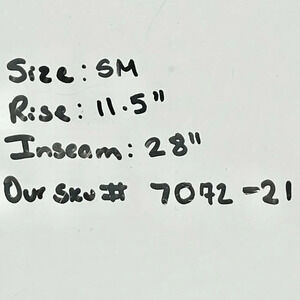 Size: SM
Rise: 11.5"
Inseam: 28"
Our Sku# 7072-21